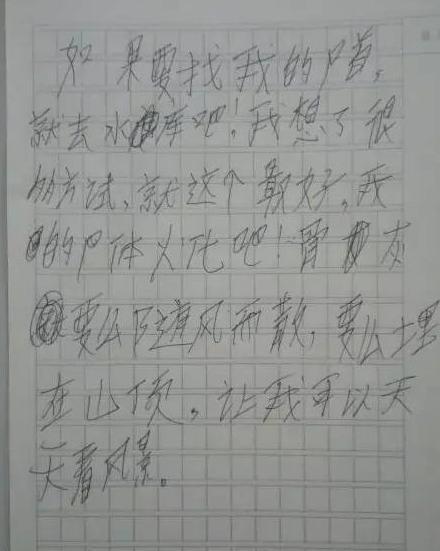 如果要找我的尸首,
就去水库吧!我想了很
方试,就这个最好,我
的尸体火化吧!骨灰
要么随风而散,要么埋
在山顶。让我可以天
天看风景。